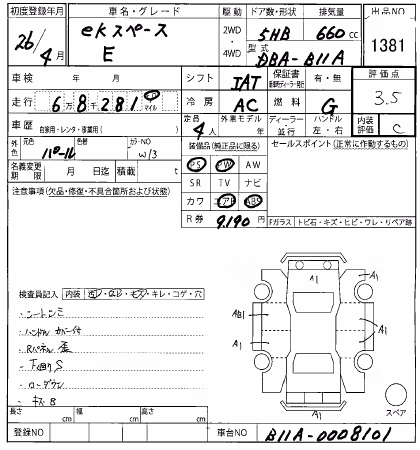 初度登録年月 車名・グレード 駆動 ドア数・形状 排気量 出品NO
26/4月 eKスペース E 2WD 4WD 5HB 660cc 1381
型式 DBA-B11A
車検 年 月 シフト IAT 保証書 有・無 評価点
走行 68281 km マイル 冷房 AC 燃料 G 3.5
車歴 自家用・レンタ・事業用( ) 定員 4人 外車モデル 年 ディーラー 並行 ハンドル 左・右 内装評価 C
外色 元色 パール 色替 カラーNO W13 装備品(純正品に限る) セールスポイント(正常に作動するもの)
名義変更期限 月 日迄 積載 t PS PW AW
注意事項(欠品・修復・不具合箇所および状態) SR TV ナビ
カワ エアB ABS
R券 9,190 Fガラス トビ石・キズ・ヒビ・ワレ・リペア跡
A1 A1
検査員記入 内装 キレ・コゲ・穴
・シートシミ AB1 A1
・ハンドルカバー付
・Rパネル歪 A1 A1
・下回りS
・ローダウン
・キズB A1 スペア
長さ cm 幅 cm 高さ cm
登録NO 車台NO B11A-0008101